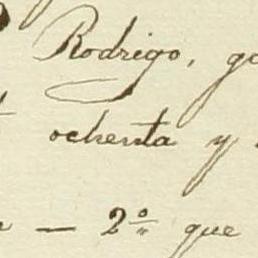 Rodrigo,
ochenta y
— 2º que